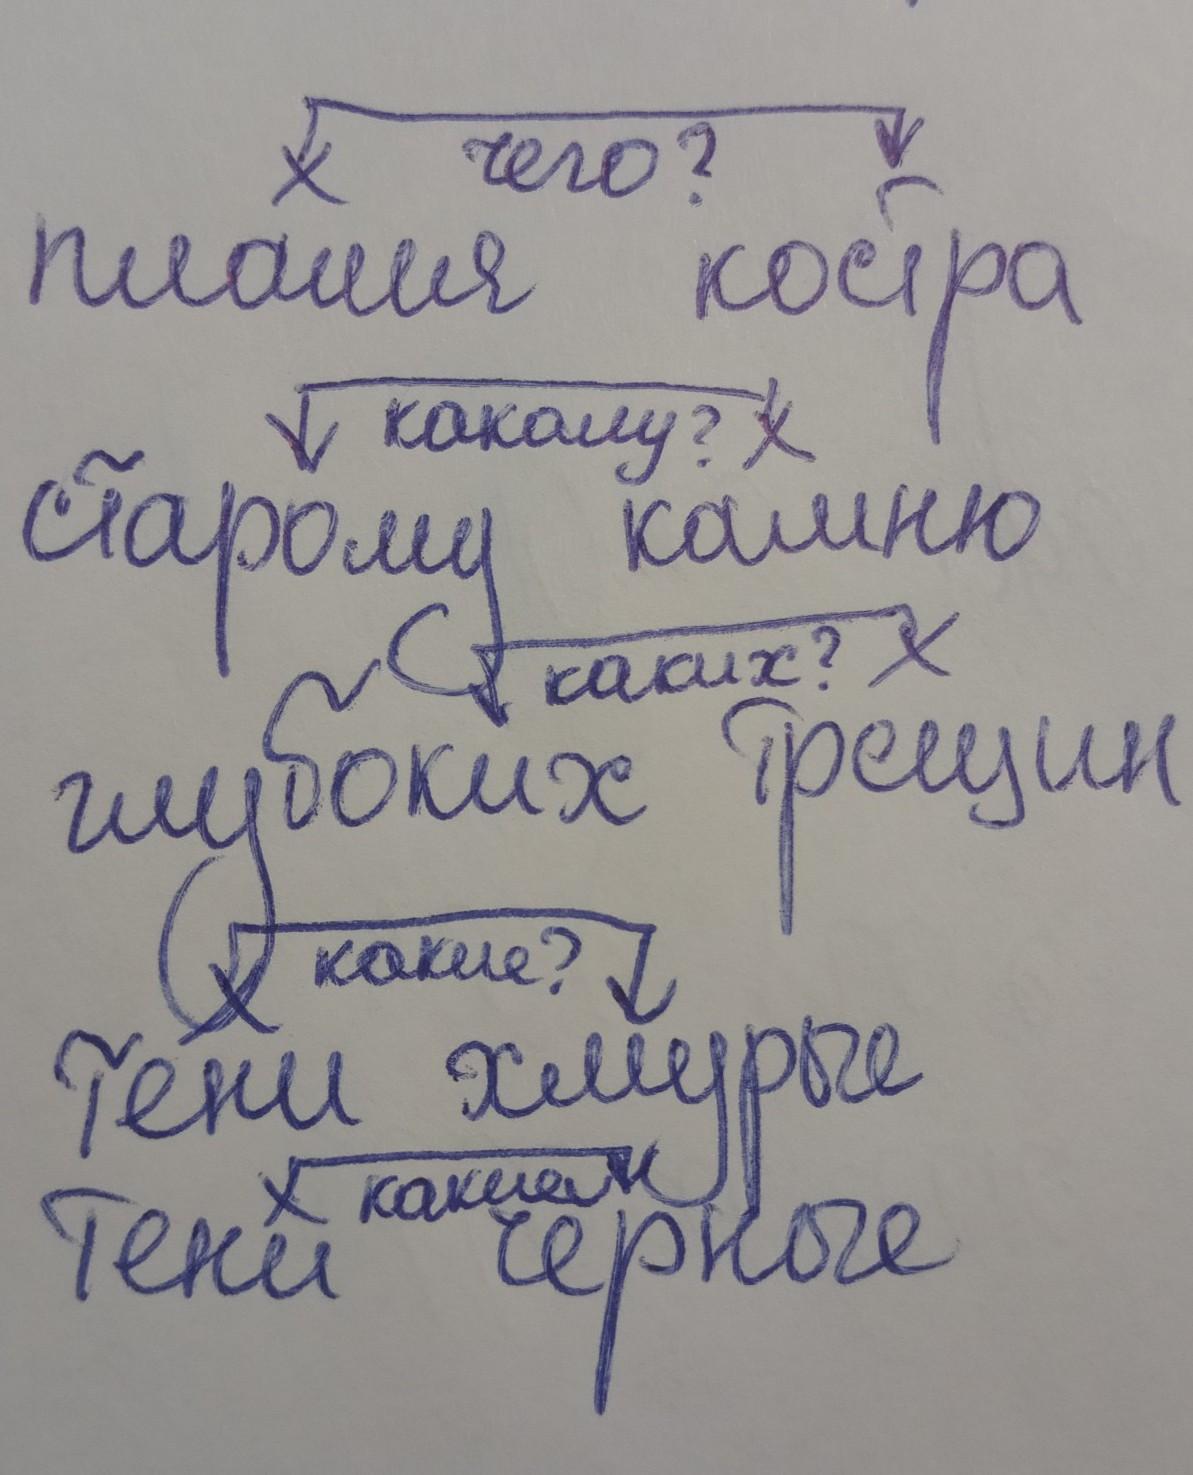 х чего?
пламя костра
какому? х
старому камню
каких? х
глубоких трещин
х какие?
Тени хмурые
х какие
Тени черные